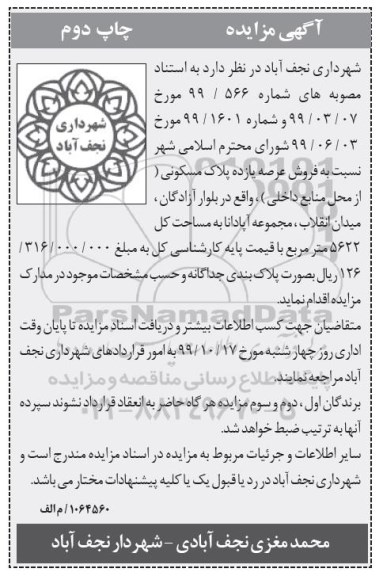 آگهی مزایده
چاپ دوم
شهرداری
نجف آباد
شهرداری نجف آباد در نظر دارد به استناد
مصوبه های شماره ۵۶۶ / ۹۹ مورخ
۰۷ / ۰۳ / ۹۹ و شماره ۱۶۰۱ / ۹۹ مورخ
۰۳ / ۰۶ / ۹۹ شورای محترم اسلامی شهر
نسبت به فروش عرصه یازده پلاک مسکونی (
از محل منابع داخلی ) ، واقع در بلوار آزادگان ،
میدان انقلاب ، مجموعه آپادانا به مساحت کل
۵۶۲۲ متر مربع با قیمت پایه کارشناسی کل به مبلغ ۰۰۰/ ۰۰۰/ ۳۱۶/
۱۲۶ ریال بصورت پلاک بندی جداگانه و حسب مشخصات موجود در مدارک
مزایده اقدام نماید.
متقاضیان جهت کسب اطلاعات بیشتر و دریافت اسناد مزایده تا پایان وقت
اداری روز چهار شنبه مورخ ۱۷ / ۱۰ / ۹۹ به امور قراردادهای شهرداری نجف
آباد مراجعه نمایند.
برندگان اول ، دوم و سوم مزایده هر گاه حاضر به انعقاد قرارداد نشوند سپرده
آنها به ترتیب ضبط خواهد شد.
سایر اطلاعات و جزئیات مربوط به مزایده در اسناد مزایده مندرج است و
شهرداری نجف آباد در رد یا قبول یک یا کلیه پیشنهادات مختار می باشد.
۱۰۶۴۵۶۰ / م الف
محمد مغزی نجف آبادی - شهردار نجف آباد
ParsNamadData
پایگاه اطلاع رسانی مناقصه و مزایده